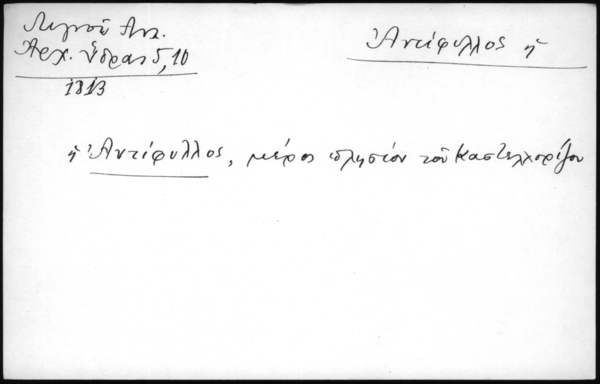 Λιγνοῦ Αντ.
Ἀρχ. Ὕδρας 5, 10
1813
Ἀντίφυλλος ἡ
ἡ Ἀντίφυλλος, μέρος πλησίον τοῦ Καστελλορίζου